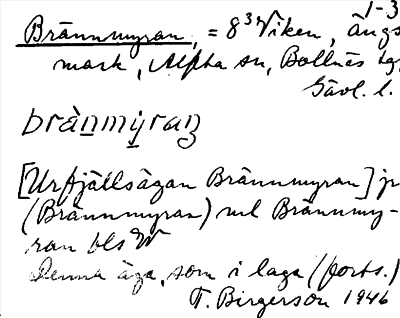 1-3
Brännmyran, = 8³ Viken, ängs
mark, Alfta sn, Bollnäs tg,
Gävl. l.
bràn̲mẏran
[Urfjällsägan Brännmyran] jr
(Brännmyran) ml Brännmy-
ran bls
Denna äga, som i laga (forts.)
T. Birgerson 1946